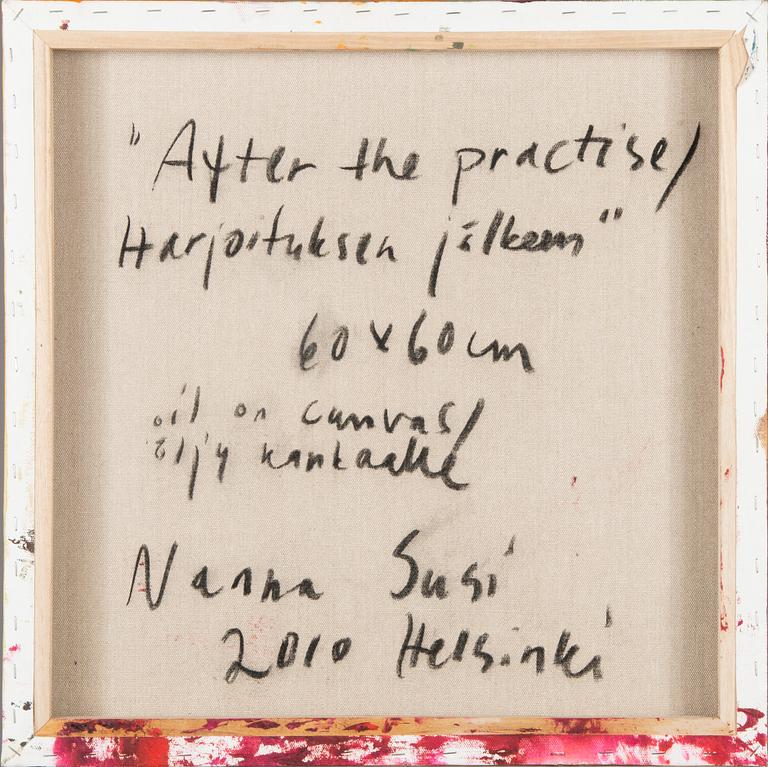 "After the practise/
Harjoituksen jälkeen"
60 x 60 cm
oil on canvas/
öljy kankaalle
Nanna Susi
2010 Helsinki